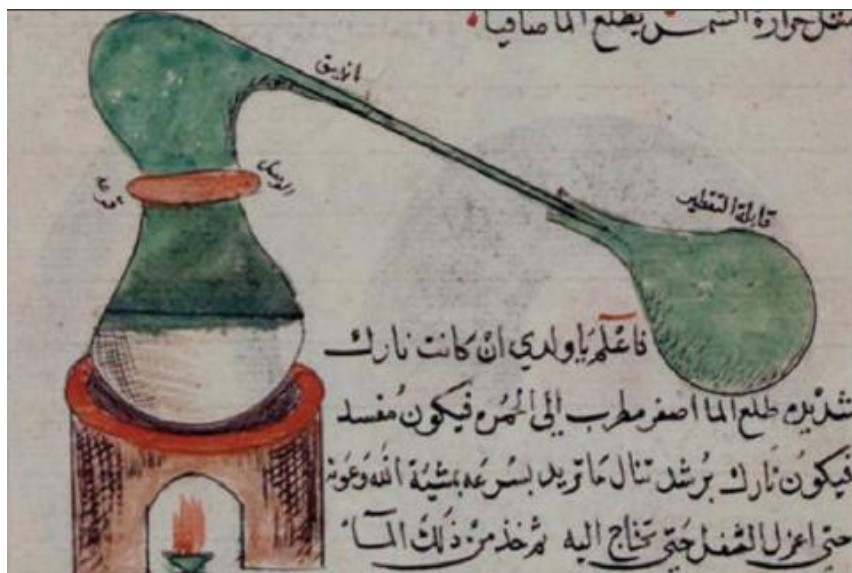 مثل حرارة الشمس يطلع الما صافيا
انبيق
الوصل
قرعه
قابلة التقطير
فاعْلَم يَا ولدي ان كانت نارك
شديده طلع الما اصفر مطرب الي الحمره فيكون مُفسد
فيكون نارك برشد تنال ما تريد بسرعه بمشية الله وعونه
حتي اعزل الثفل حتي تحتاج اليه ثم خذ من ذلك المآء